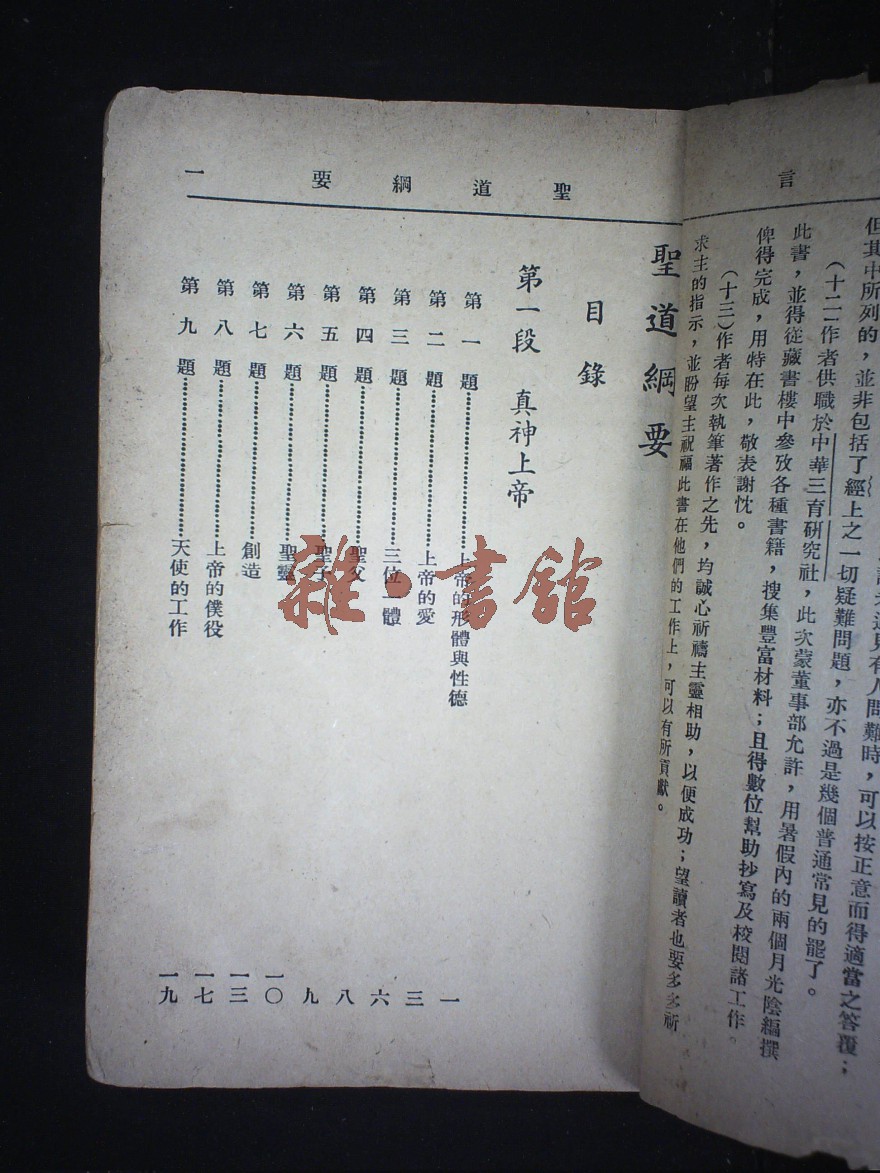 言
但其中所列的，並非包括了經上之一切疑難問題，亦不過是幾個普通常見的罷了。
（十二）作者供職於中華三育研究社，此次蒙董事部允許，用暑假內的兩個月光陰編撰
此書，並得從藏書樓中參攷各種書籍，搜集豐富材料；且得數位幫助抄寫及校閱諸工作。
俾得完成，用特在此，敬表謝忱。
（十三）作者每次執筆著作之先，均誠心祈禱主靈相助，以便成功；望讀者也要多多祈
求主的指示，並盼望主祝福此書在他們的工作上，可以有所貢獻。
聖道綱要 一
聖道綱要
目錄
第一段 真神上帝
第一題 上帝的形體與性德 一
第二題 上帝的愛 三
第三題 三位一體 六
第四題 聖父 八
第五題 聖子 九
第六題 聖靈 一〇
第七題 創造 一三
第八題 上帝的僕役 一七
第九題 天使的工作 一九
雜·書館